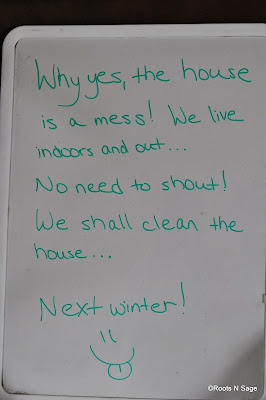 Why yes, the house
is a mess! We live
indoors and out...
No need to shout!
We shall clean the
house...
Next winter!
©Roots N Sage